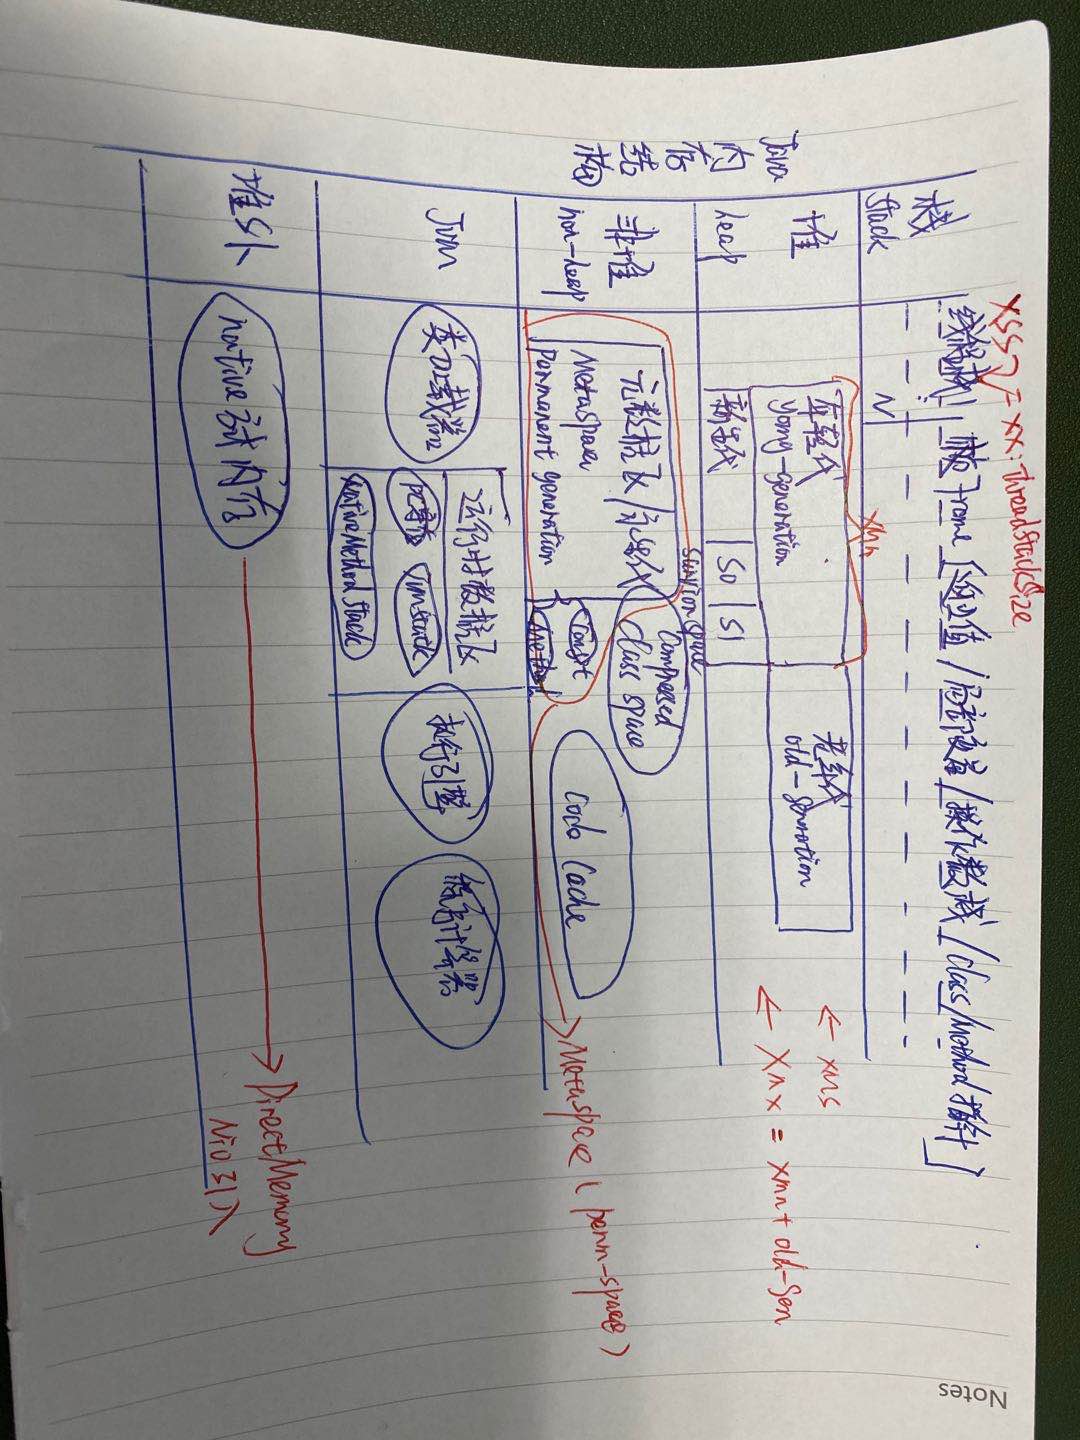 Java
内存
结构
XSS = XX:ThreadStackSize
栈
Stack
线程栈1 栈Frame [返回值/局部变量/操作数栈/Class/Method指针]
N
堆
heap
Xmn
年轻代
young-generation
新生代
S0 S1
survion space
老年代
old-generation
← xms
← Xmx = xmn + old-Gen
非堆
non-heap
元数据区/永久代
Metaspace
Permanent generation
Const
method
Compressed
class space
Code Cache
Metaspace (perm-space)
Jvm
类加载器
运行时数据区
PC寄存
Jvmstack
NativeMethod Stack
执行引擎
堆外
native 内存
DirectMemory
NIO引入
Notes